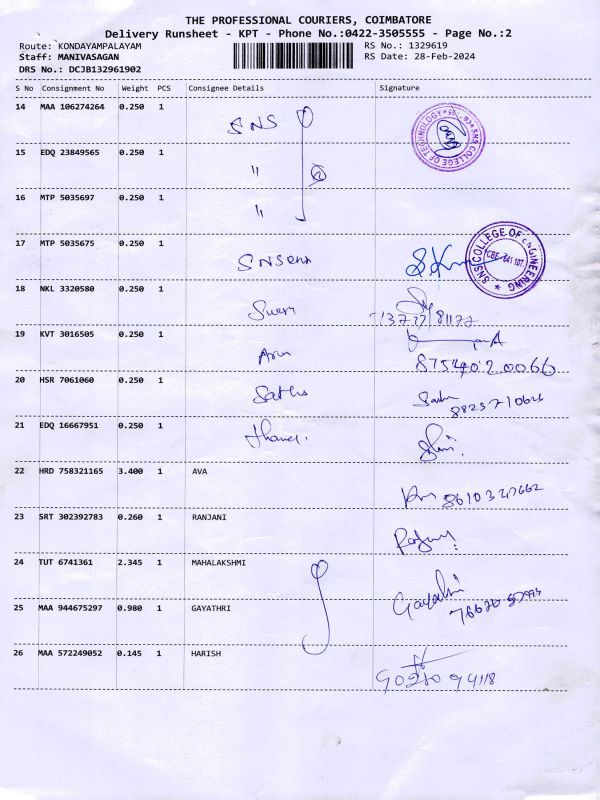 THE PROFESSIONAL COURIERS, COIMBATORE
Delivery Runsheet - KPT - Phone No.:0422-3505555 - Page No.:2
Route: KONDAYAMPALAYAM RS No.: 1329619
Staff: MANIVASAGAN RS Date: 28-Feb-2024
DRS No.: DCJB132961902
S No Consignment No Weight PCS Consignee Details Signature
14 MAA 106274264 0.250 1 SNS
SNS COLLEGE OF TECHNOLOGY
15 EDQ 23849565 0.250 1 "
16 MTP 5035697 0.250 1 "
17 MTP 5035675 0.250 1
SNS COLLEGE OF ENGINEERING
18 NKL 3320580 0.250 1
19 KVT 3016505 0.250 1 Arun
8754020066
20 HSR 7061060 0.250 1
21 EDQ 16667951 0.250 1
22 HRD 758321165 3.400 1 AVA
23 SRT 302392783 0.260 1 RANJANI
24 TUT 6741361 2.345 1 MAHALAKSHMI
Gayathri
25 MAA 944675297 0.980 1 GAYATHRI
26 MAA 572249052 0.145 1 HARISH